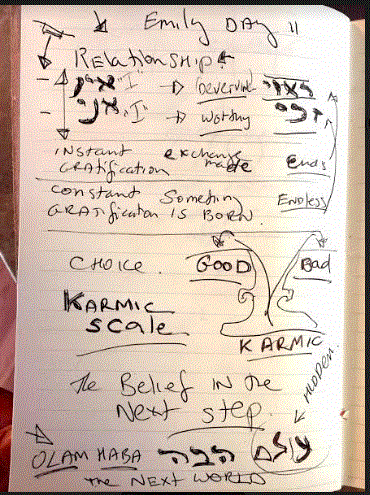 Emily DAY 11
RELATIONSHIP
- אין "I" → ראוי
- אני "I" → worthy
INSTANT GRATification exchange made Ends
Constant GRATification Something IS BORN. Endless
CHOICE. GOOD Bad
KARMIC scale.
KARMIC
HIDDEN
The Belief in the
Next step.
OLAM HABA הבה עולם
the NEXT WORLD